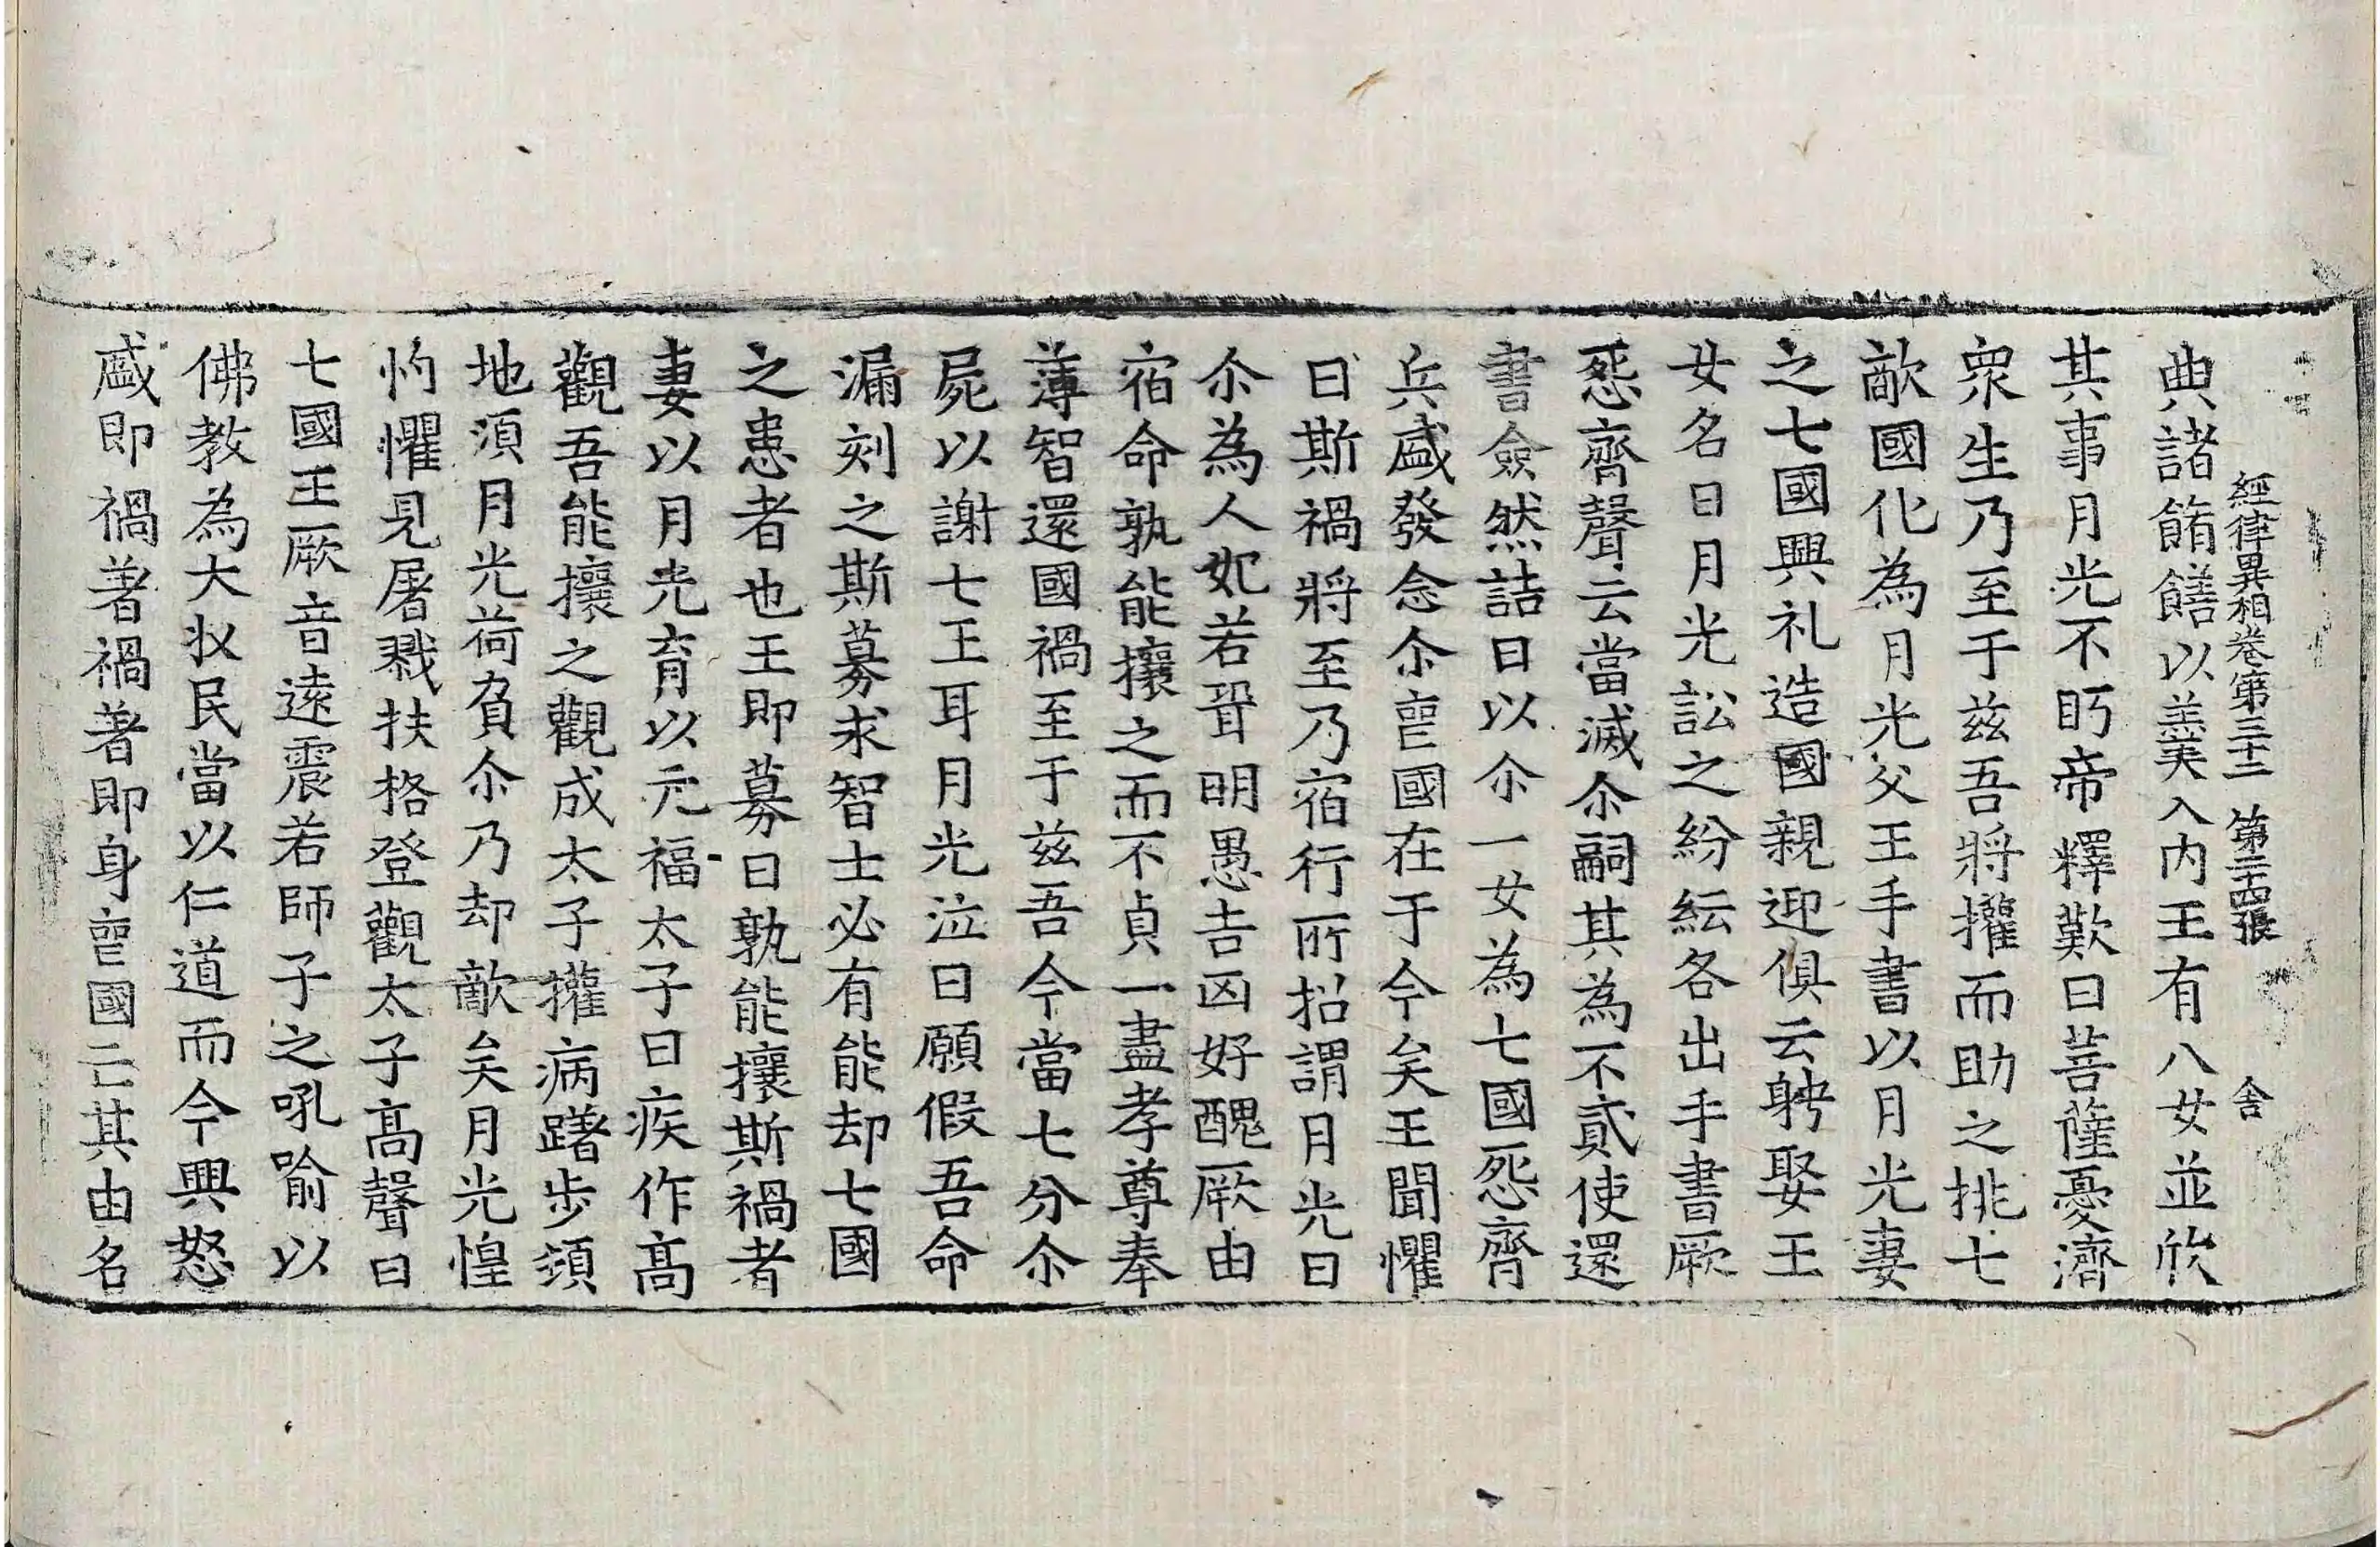 經律異相卷第三十二 第二十四張 舍
典諸餚饍以羹入內王有八女並欣
其事月光不眄帝釋歎曰菩薩憂濟
眾生乃至于茲吾將擢而助之挑七
敵國化為月光父王手書以月光妻
之七國興礼造國親迎俱云娉娶王
女名曰月光訟之紛紜各出手書厥
怨齊聲云當滅尒嗣其為不貳使還
書僉然詰曰以尒一女為七國怨齊
兵盛發念尒喪國在于今矣王聞懼
曰斯禍將至乃宿行所招謂月光曰
尒為人妃若聟明愚吉凶好醜厥由
宿命孰能攘之而不貞一盡孝尊奉
薄智還國禍至于茲吾今當七分尒
屍以謝七王耳月光泣曰願假吾命
漏刻之斯募求智士必有能却七國
之患者也王即募曰孰能攘斯禍者
妻以月光育以元福太子曰疾作高
觀吾能攘之觀成太子擢病躇步須
地須月光荷負尒乃却敵矣月光惶
灼懼見屠戮扶格登觀太子高聲曰
七國王厥音遠震若師子之吼喻以
佛教為大牧民當以仁道而今興怒
盛即禍著禍著即身喪國亡其由名